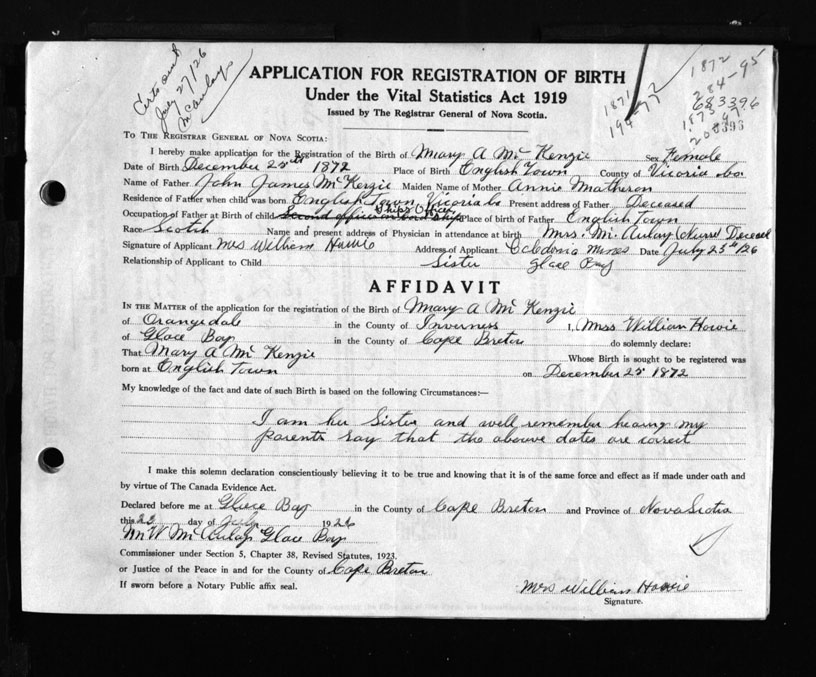 Certs sent
July 27/26
McAulays
1872
1871 1872 284-95
194-77 683396
1873
208396
APPLICATION FOR REGISTRATION OF BIRTH
Under the Vital Statistics Act 1919
Issued by The Registrar General of Nova Scotia.
To The Registrar General of Nova Scotia:
I hereby make application for the Registration of the Birth of Mary A McKenzie Sex Female
Date of Birth December 25th 1872 Place of Birth English Town County of Vicoria Co.
Name of Father John James McKenzie Maiden Name of Mother Annie Matheron
Residence of Father when child was born English Town Vicoria Co Present address of Father Deceased
Occupation of Father at Birth of child Second officer on board ship Ships Officer Place of birth of Father English Town
Race Scotch Name and present address of Physician in attendance at birth Mrs. McAulay (Nurse) Deceased
Signature of Applicant Mrs William Howie Address of Applicant Caledonia Mines Date July 23rd/26
Relationship of Applicant to Child Sister Glace Bay
AFFIDAVIT
In the Matter of the application for the registration of the Birth of Mary A McKenzie
of Orangedale in the County of Inverness I, Mrss William Howie
of Glace Bay in the County of Cape Breton do solemnly declare:
That Mary A McKenzie Whose Birth is sought to be registered was
born at English Town on December 25 1872
My knowledge of the fact and date of such Birth is based on the following Circumstances:—
I am her Sister and well remember hearing my
parents say that the above dates are correct
I make this solemn declaration conscientiously believing it to be true and knowing that it is of the same force and effect as if made under oath and
by virtue of The Canada Evidence Act.
Declared before me at Glace Bay in the County of Cape Breton and Province of Nova Scotia
this 23 day of July 1926
McAulay Glace Bay
Commissioner under Section 5, Chapter 38, Revised Statutes, 1923.
or Justice of the Peace in and for the County of Cape Breton
If sworn before a Notary Public affix seal. Mrs William Howie
Signature.